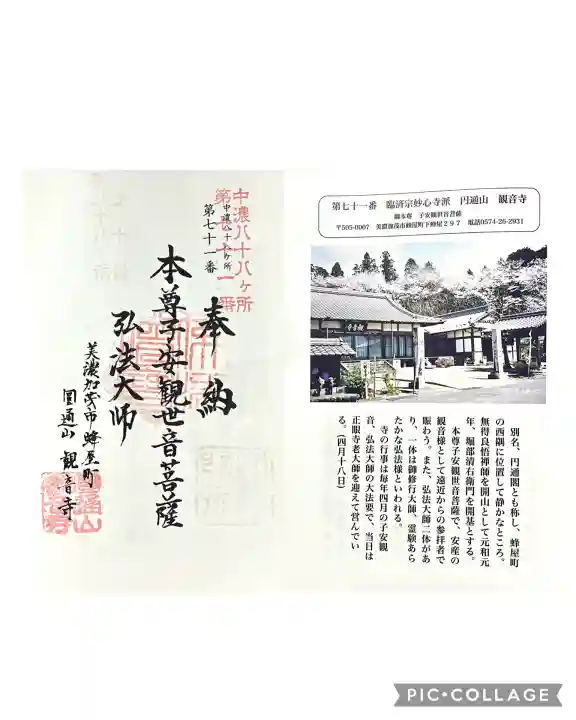 中濃八十八ヶ所
第七十一番
中濃八十八ヶ所
第七十一番
奉納
本尊子安観世音菩薩
弘法大師
美濃加茂市蜂屋町
圓通山 観音寺
第七十一番 臨済宗妙心寺派 円通山 観音寺
御本尊 子安観世音菩薩
〒505-0007 美濃加茂市蜂屋町下蜂屋297 電話0574-26-2931
別名、円通閣とも称し、蜂屋町
の西隅に位置して静かなところ。
無得良悟禅師を開山として元和元
年、堀部清右衛門を開基とする。
本尊子安観世音菩薩で、安産の
観音様として遠近からの参拝者で
賑わう。また、弘法大師二体があ
り、一体は御修行大師、霊験あら
たかな弘法様といわれる。
寺の行事は毎年四月の子安観
音、弘法大師の大法要で、当日は
正眼寺老大師を迎えて営んでい
る。(四月十八日)
PIC•COLLAGE